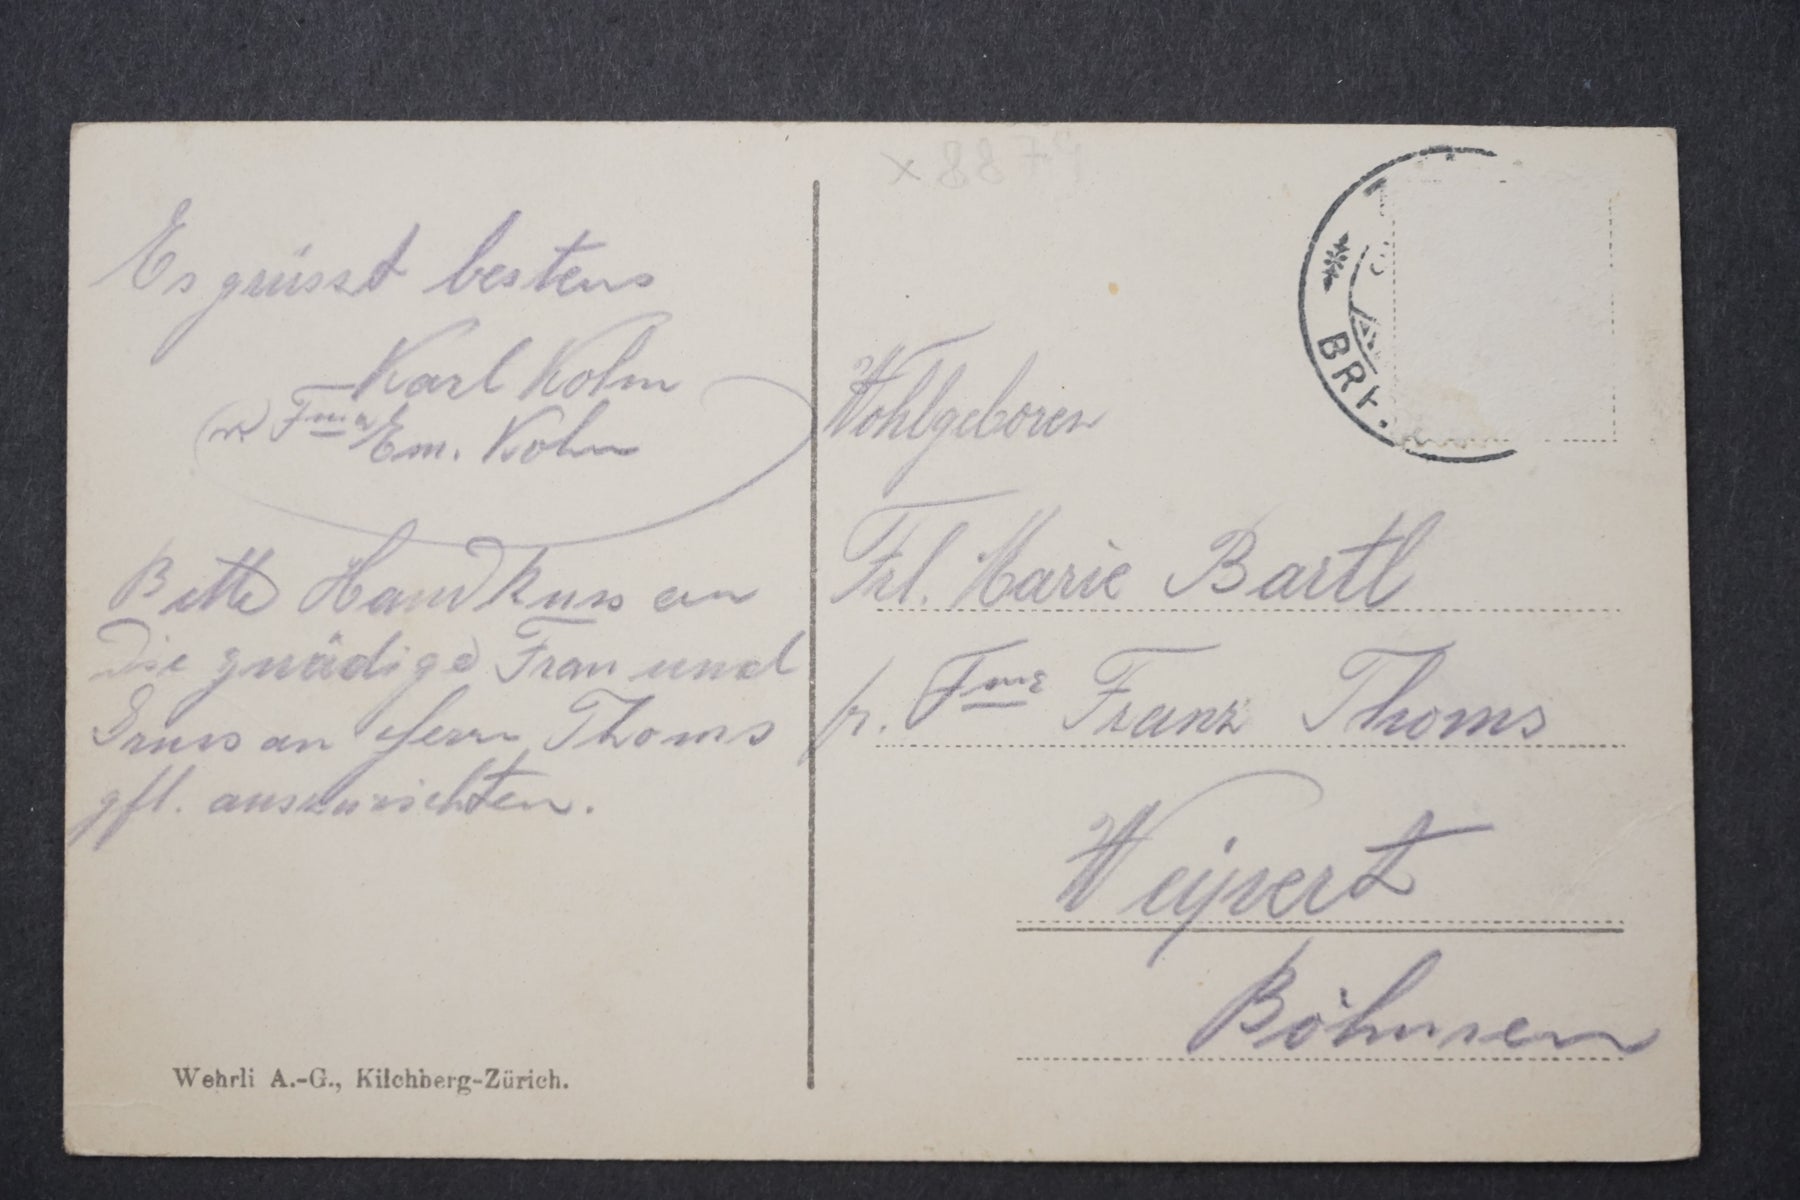 Es grüsst bestens
Karl Kohn
Fma Em. Kohn
Bitte Handkuss an
Die gnädige Frau und
Gruss an Herrn Thoms
gfl. auszurichten.
Wehrli A.-G., Kilchberg-Zürich.
x 8879
BRY.
Wohlgeboren
Frl. Marie Bartl
pr. Fme Franz Thoms
Weipert
Böhmen